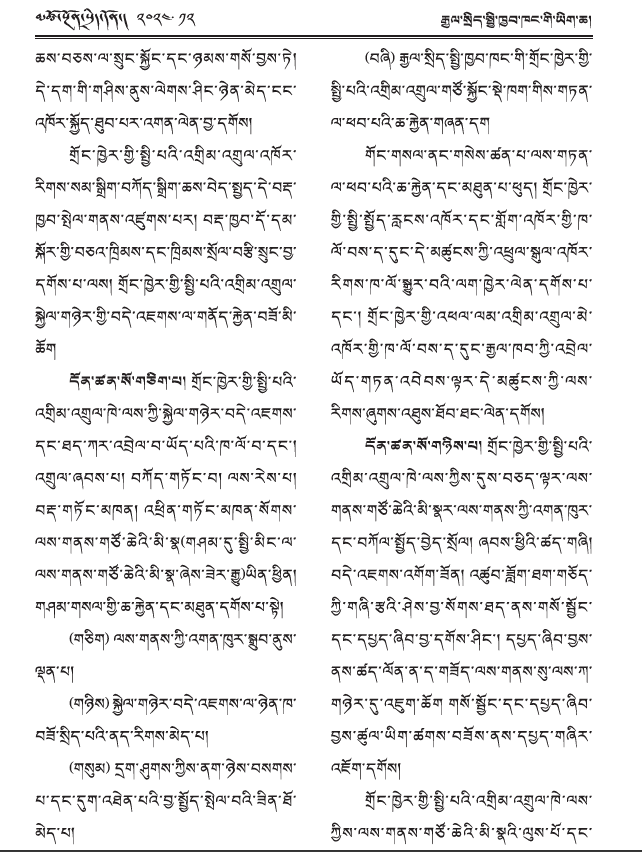 ༢༠༢༤.༡༢
རྒྱལ་སྲིད་སྤྱི་ཁྱབ་ཁང་གི་ཡིག་ཆ།
ཆས་བཅས་ལ་སྲུང་སྐྱོང་དང་ཉམས་གསོ་བྱས་ཏེ།
དེ་དག་གི་གཤིས་ནུས་ལེགས་ཤིང་ཉེན་མེད་ངང་
འཁོར་སྐྱོད་ཐུབ་པར་འགན་ལེན་བྱ་དགོས།
གྲོང་ཁྱེར་གྱི་སྤྱི་པའི་འགྲིམ་འགྲུལ་འཁོར་
རིགས་སམ་སྒྲིག་བཀོད་སྒྲིག་ཆས་བེད་སྤྱད་དེ་བརྡ་
ཁྱབ་སྤེལ་གནས་འཛུགས་པར། བརྡ་ཁྱབ་དོ་དམ་
སྐོར་གྱི་བཅའ་ཁྲིམས་དང་ཁྲིམས་སྲོལ་བརྩི་སྲུང་བྱ་
དགོས་པ་ལས། གྲོང་ཁྱེར་གྱི་སྤྱི་པའི་འགྲིམ་འགྲུལ་
སྐྱེལ་གཉེར་གྱི་བདེ་འཇགས་ལ་གནོད་རྐྱེན་བཟོ་མི་
ཆོག
དོན་ཚན་སོ་གཅིག་པ། གྲོང་ཁྱེར་གྱི་སྤྱི་པའི་
འགྲིམ་འགྲུལ་ཁེ་ལས་ཀྱི་སྐྱེལ་གཉེར་བདེ་འཇགས་
དང་ཐད་ཀར་འབྲེལ་བ་ཡོད་པའི་ཁ་ལོ་བ་དང་།
འགྲུལ་ཞབས་པ། བཀོད་གཏོང་བ། ལས་རེས་པ།
བརྡ་གཏོང་མཁན། འཕྲིན་གཏོང་མཁན་སོགས་
ལས་གནས་གཙོ་ཆེའི་མི་སྣ(གཤམ་དུ་སྤྱི་མིང་ལ་
ལས་གནས་གཙོ་ཆེའི་མི་སྣ་ཞེས་ཟེར་རྒྱུ)ཡིན་ཕྱིན།
གཤམ་གསལ་གྱི་ཆ་རྐྱེན་དང་མཐུན་དགོས་པ་སྟེ།
(གཅིག) ལས་གནས་ཀྱི་འགན་ཁུར་སྒྲུབ་ནུས་
ལྡན་པ།
(གཉིས) སྐྱེལ་གཉེར་བདེ་འཇགས་ལ་ཉེན་ཁ་
བཟོ་སྲིད་པའི་ནད་རིགས་མེད་པ།
(གསུམ) དྲག་ཤུགས་ཀྱིས་ནག་ཉེས་བསགས་
པ་དང་དུག་འཐེན་པའི་བྱ་སྤྱོད་སྤེལ་བའི་ཟིན་ཐོ་
མེད་པ།
(བཞི) རྒྱལ་སྲིད་སྤྱི་ཁྱབ་ཁང་གི་གྲོང་ཁྱེར་གྱི་
སྤྱི་པའི་འགྲིམ་འགྲུལ་གཙོ་སྐྱོང་སྡེ་ཁག་གིས་གཏན་
ལ་ཕབ་པའི་ཆ་རྐྱེན་གཞན་དག
གོང་གསལ་ནང་གསེས་ཚན་པ་ལས་གཏན་
ལ་ཕབ་པའི་ཆ་རྐྱེན་དང་མཐུན་པ་ཕུད། གྲོང་ཁྱེར་
གྱི་སྤྱི་སྤྱོད་རླངས་འཁོར་དང་གློག་འཁོར་གྱི་ཁ་
ལོ་བས་ད་དུང་དེ་མཚུངས་ཀྱི་འཕྲུལ་སྒུལ་འཁོར་
རིགས་ཁ་ལོ་སྒྱུར་བའི་ལག་ཁྱེར་ལེན་དགོས་པ་
དང་། གྲོང་ཁྱེར་གྱི་འཕལ་ལམ་འགྲིམ་འགྲུལ་མེ་
འཁོར་གྱི་ཁ་ལོ་བས་ད་དུང་རྒྱལ་ཁབ་ཀྱི་འབྲེལ་
ཡོད་གཏན་འབེབས་ལྟར་དེ་མཚུངས་ཀྱི་ལས་
རིགས་ཞུགས་འཐུས་ཐོབ་ཐང་ལེན་དགོས།
དོན་ཚན་སོ་གཉིས་པ། གྲོང་ཁྱེར་གྱི་སྤྱི་པའི་
འགྲིམ་འགྲུལ་ཁེ་ལས་ཀྱིས་དུས་བཅད་ལྟར་ལས་
གནས་གཙོ་ཆེའི་མི་སྣར་ལས་གནས་ཀྱི་འགན་ཁུར་
དང་བཀོལ་སྤྱོད་བྱེད་སྲོལ། ཞབས་ཕྱིའི་ཚད་གཞི།
བདེ་འཇགས་འགོག་ཟོན། འཚུབ་ཟློག་ཐག་གཅོད་
ཀྱི་གཞི་རྩའི་ཤེས་བྱ་སོགས་ཐད་ནས་གསོ་སྦྱོང་
དང་དཔྱད་ཞིབ་བྱ་དགོས་ཤིང་། དཔྱད་ཞིབ་བྱས་
ནས་ཚད་ལོན་ན་ད་གཟོད་ལས་གནས་སུ་ལས་ཀ་
གཉེར་དུ་འཇུག་ཆོག གསོ་སྦྱོང་དང་དཔྱད་ཞིབ་
བྱས་ཚུལ་ཡིག་ཚགས་བཟོས་ནས་དཔྱད་གཞིར་
འཇོག་དགོས།
གྲོང་ཁྱེར་གྱི་སྤྱི་པའི་འགྲིམ་འགྲུལ་ཁེ་ལས་
ཀྱིས་ལས་གནས་གཙོ་ཆེའི་མི་སྣའི་ལུས་པོ་དང་